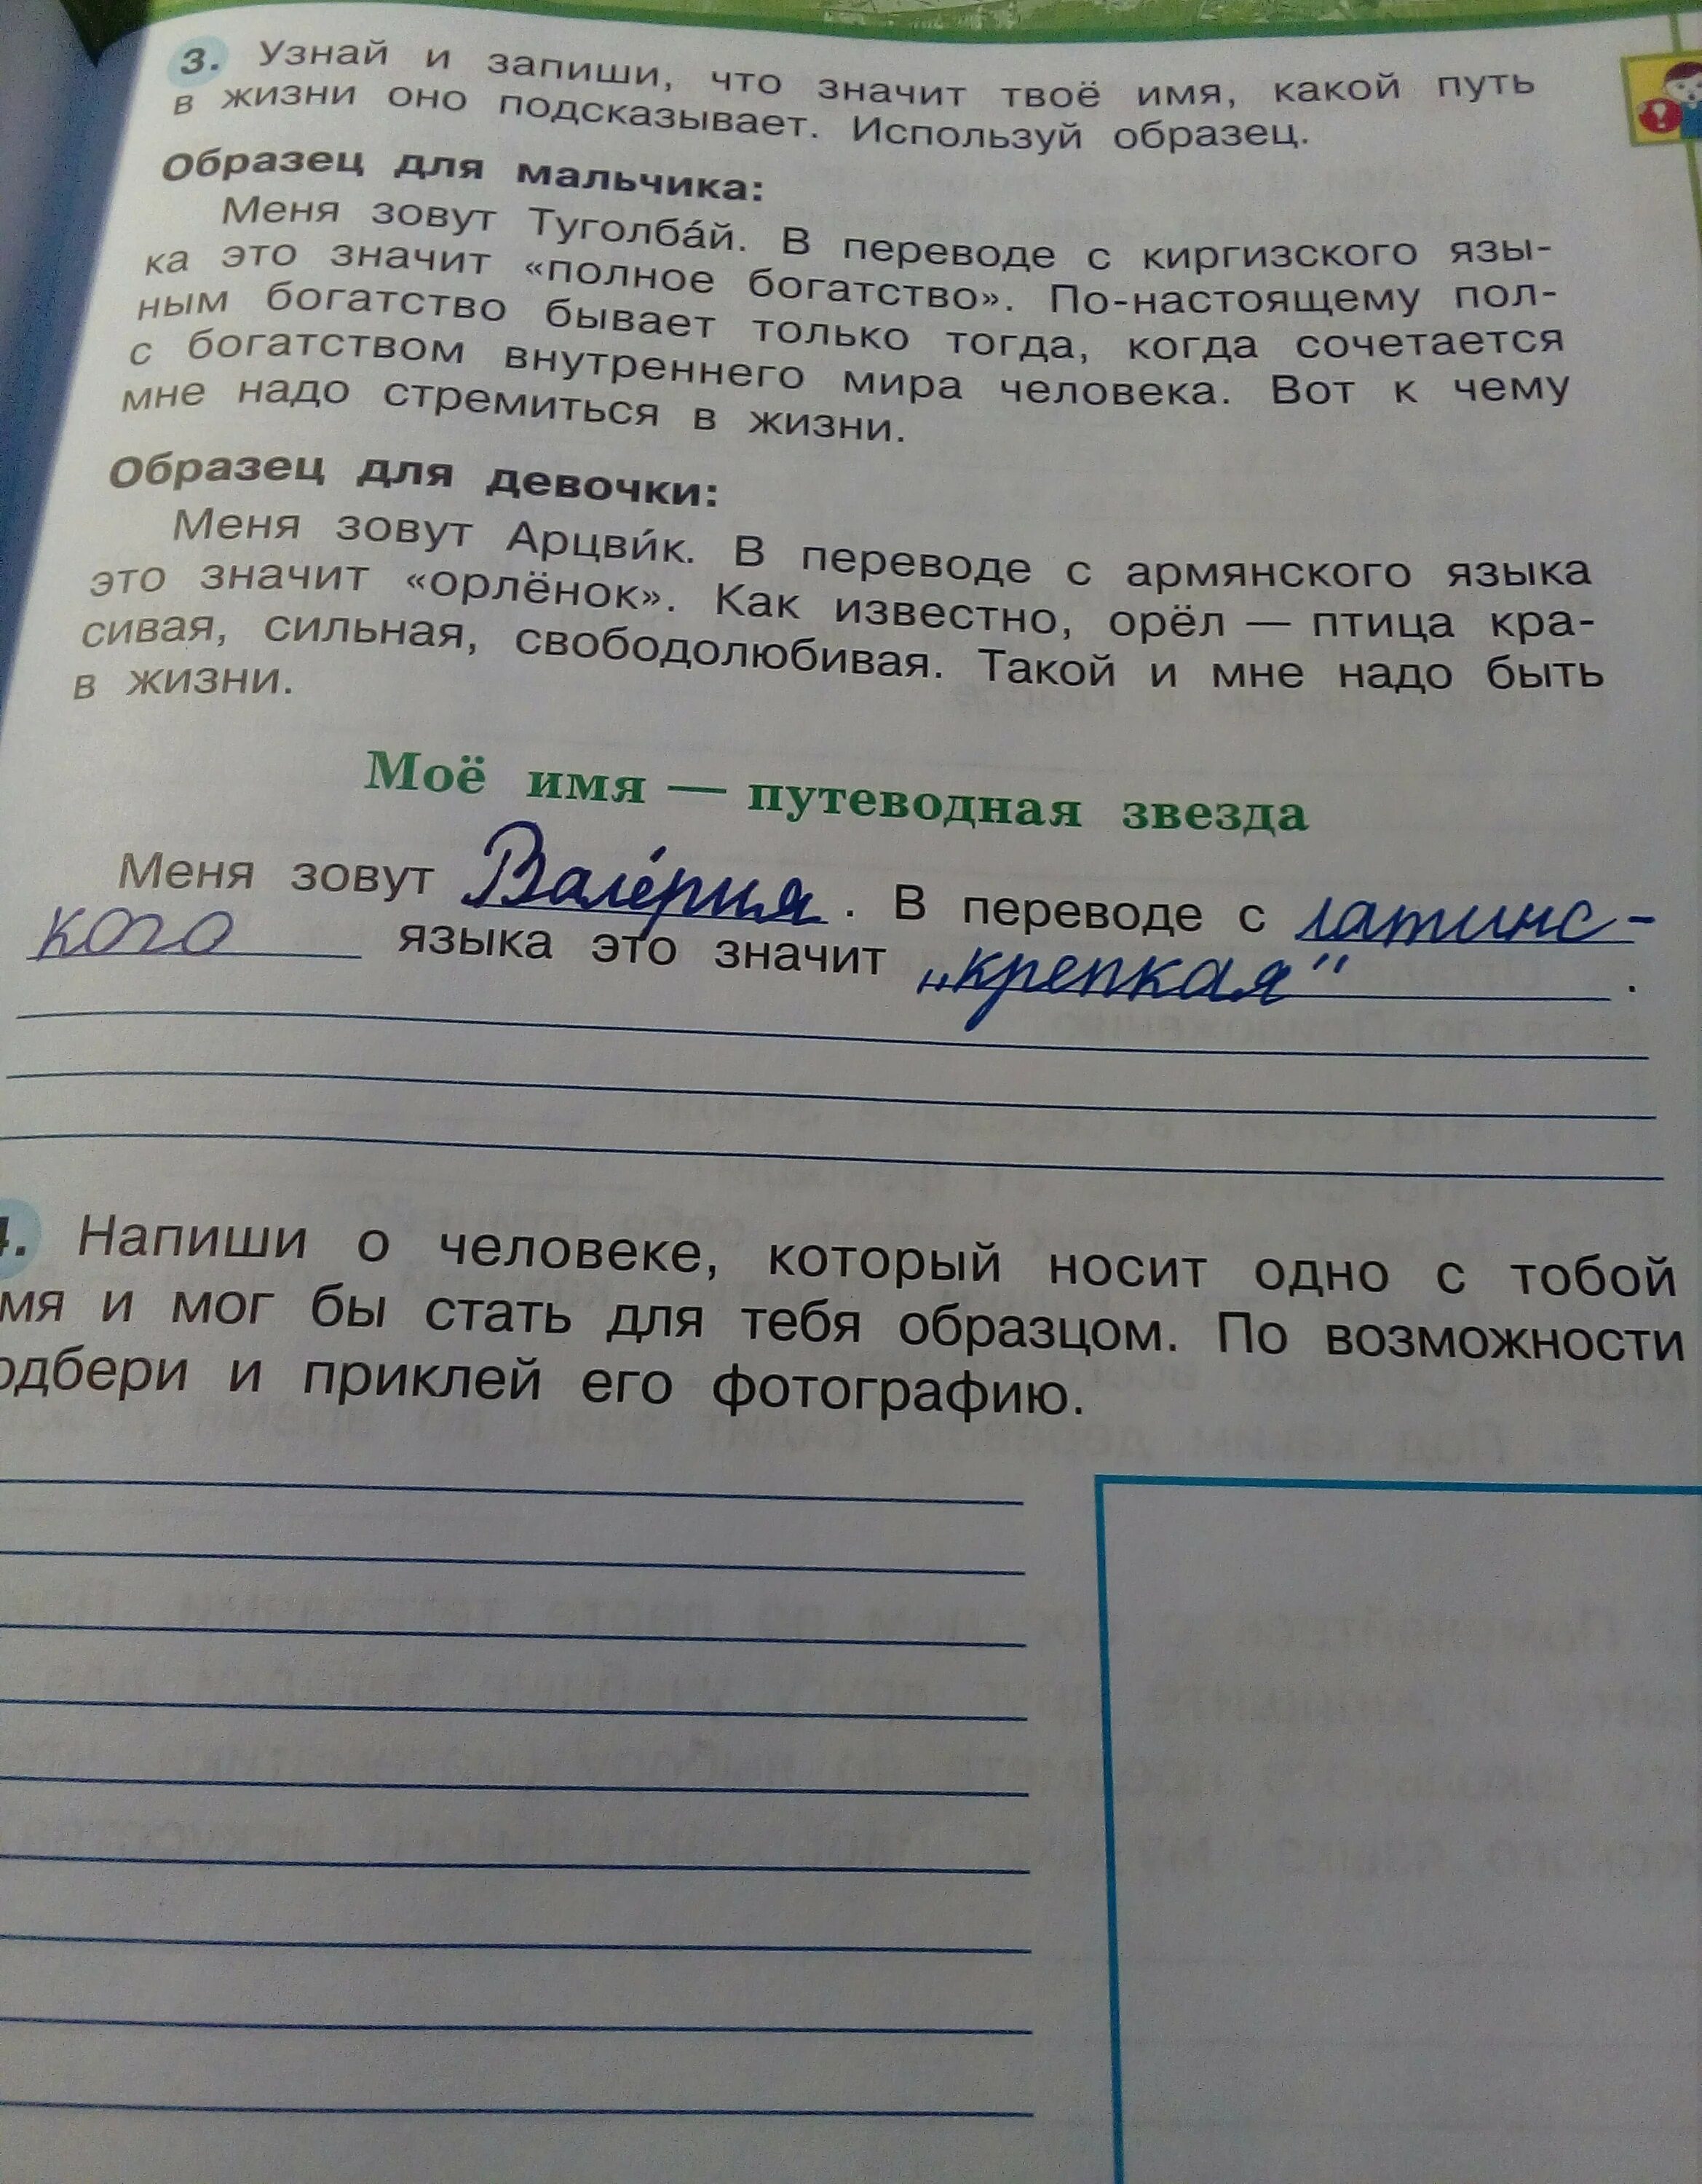 3. Узнай и запиши, что значит твоё имя, какой путь
в жизни оно подсказывает. Используй образец.
Образец для мальчика:
Меня зовут Туголба́й. В переводе с киргизского язы-
ка это значит «полное богатство». По-настоящему пол-
ным богатство бывает только тогда, когда сочетается
с богатством внутреннего мира человека. Вот к чему
мне надо стремиться в жизни.
Образец для девочки:
Меня зовут Арцви́к. В переводе с армянского языка
это значит «орлёнок». Как известно, орёл — птица кра-
сивая, сильная, свободолюбивая. Такой и мне надо быть
в жизни.
Моё имя — путеводная звезда
Меня зовут Вале́рия. В переводе с латинс-
кого языка это значит „крепкая".
4. Напиши о человеке, который носит одно с тобой
мя и мог бы стать для тебя образцом. По возможности
одбери и приклей его фотографию.